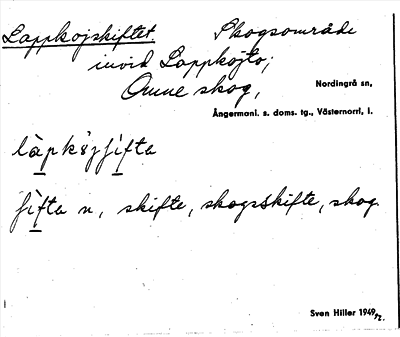 Lappkojskiftet. Skogsområde
invid Lappkojto;
Omne skog,
Nordingrå sn,
Ångermanl. s. doms. tg., Västernorrl. l.
fifta n, skifte, skogsskifte, skog.
Sven Hiller 1949